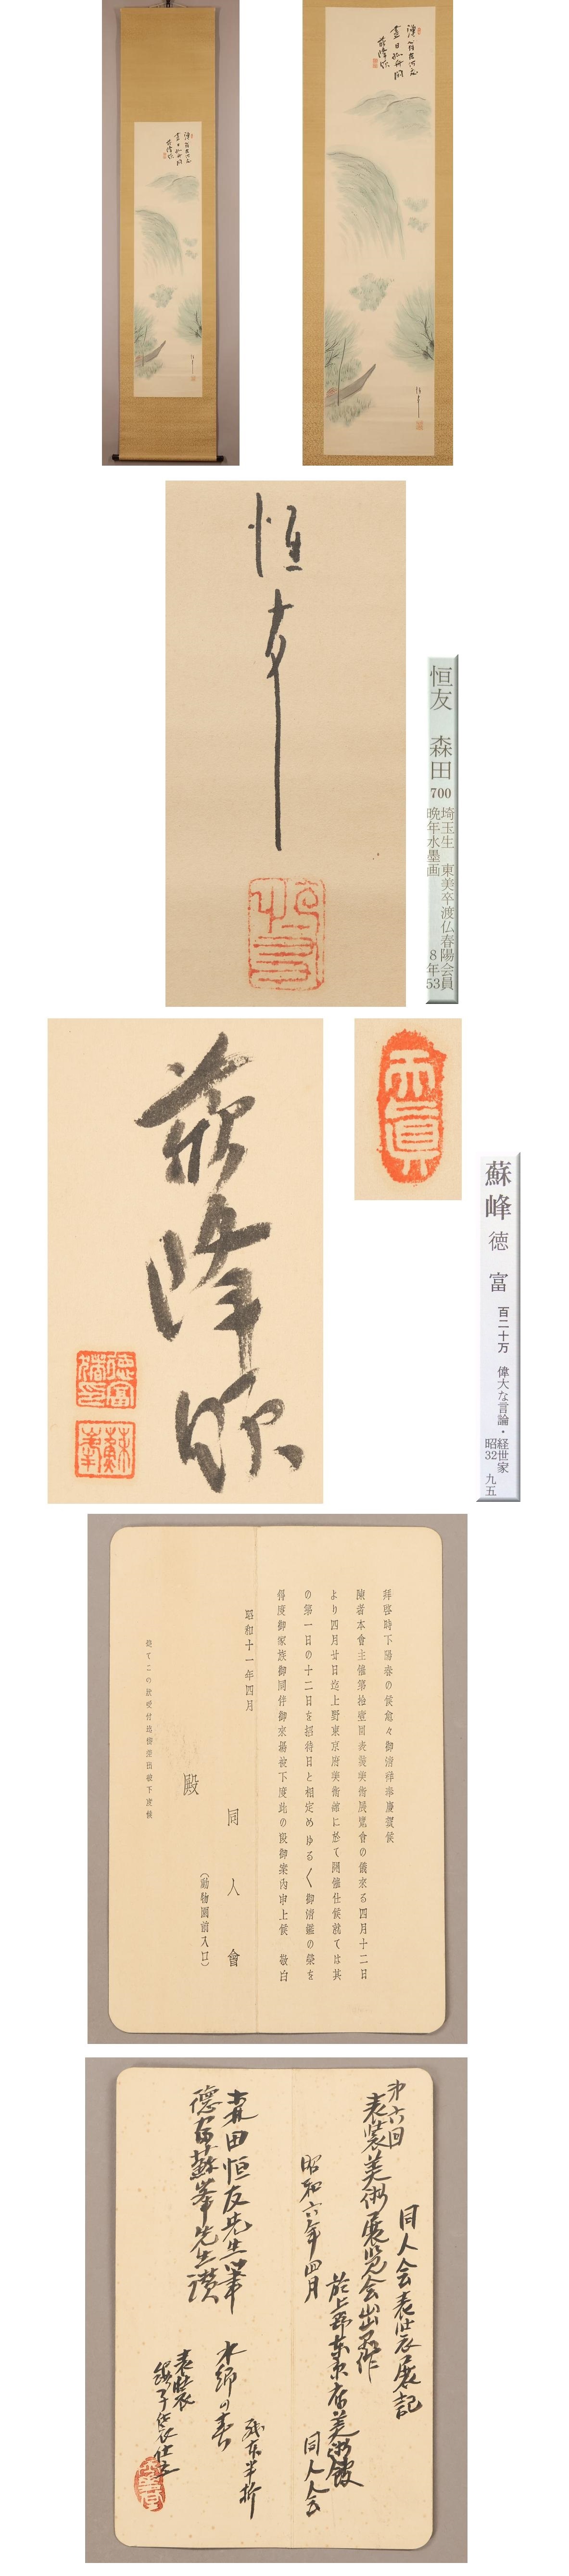 恒友
恒友 森田
700
埼玉生 東美卒渡仏春陽会員
晩年水墨画 8年53
蘇峰
蘇峰 徳富
百二十万
偉大な言論・経世家
昭32 九五
拝啓時下陽春の候愈々御清祥奉慶賀候
陳者本會主催第拾壹回表裝美術展覽會の儀來る四月十二日
より四月廿日迄上野東京府美術館に於て開催仕候就ては其
の第一日の十二日を招待日と相定めゆる〱御清鑑の榮を
得度御家族御同伴御來場被下度此の段御案内申上候 敬白
昭和十一年四月
同人會
(動物園前入口)
殿
同人会表装展記
第六回
表装美術展覧会出品作
於上野東京府美術館
昭和六年四月
同人会
森田恒友先生筆
徳富蘇峯先生讃
水郷の春
表装
緞子袋仕立